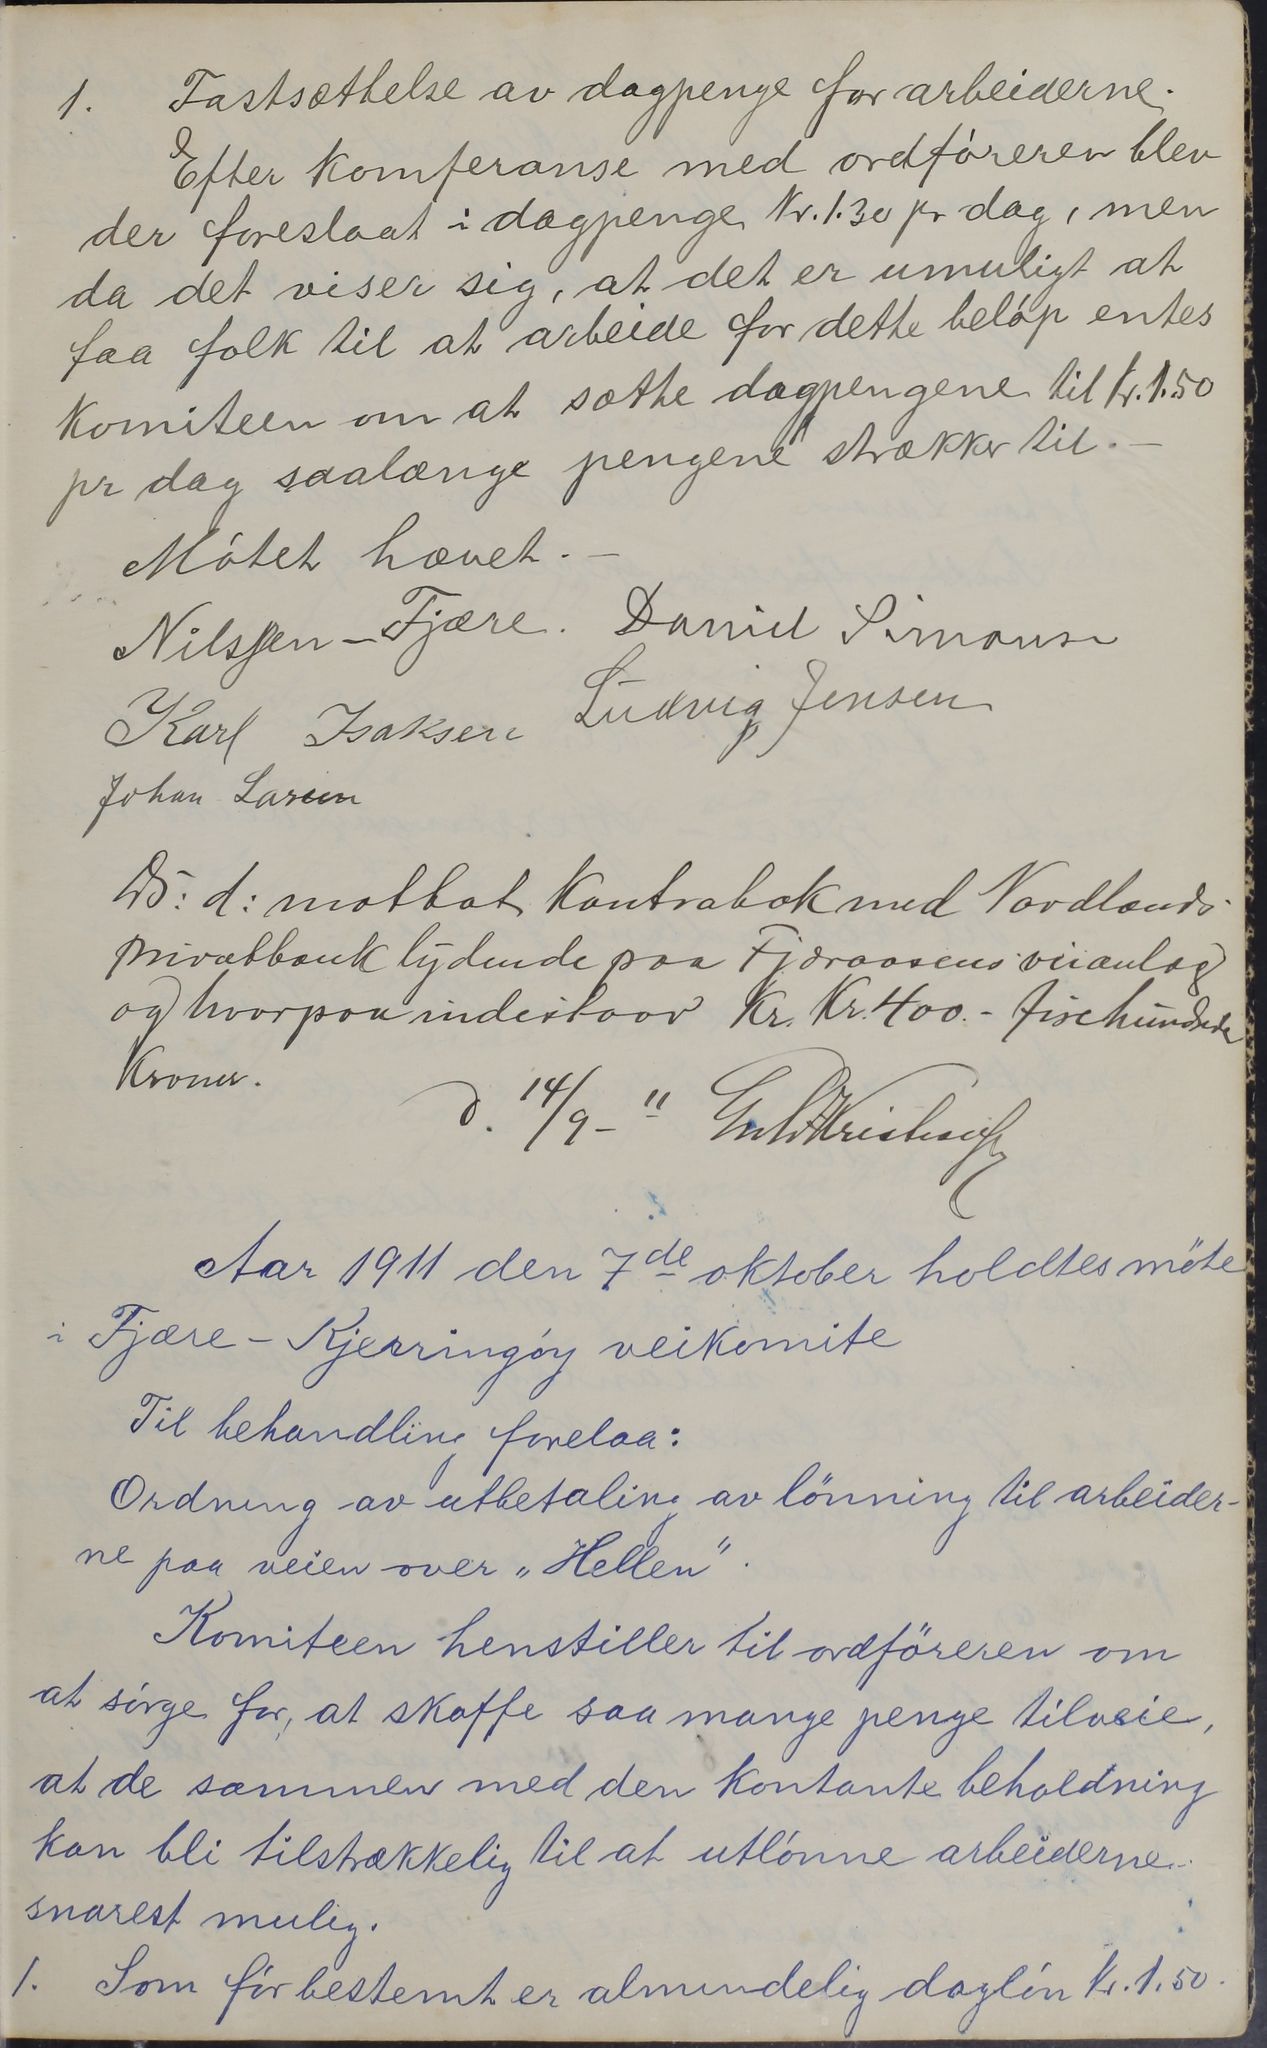 1. Fastsættelse av dagpenge for arbeiderne.
Efter komferanse med ordföreren blev
der foreslaat i dagpenge Kr. 1.30 pr dag, men
da det viser sig, at det er umuligt at
faa folk til at arbeide for dette beløp entes
komiteen om at sætte dagpengene til kr. 1.50
pr dag saalænge pengene strækker til. —
Mötet hævet. —
Nilssen - Fjære. Daniel Simonsen
Karl Isaksen Ludvig Jensen
Johan Larsen
D: d: mottat kontrabok med Nordlands
privatbank lydende paa Fjæraasens veianlæg
og hvorpaa indestaar Kr. Kr. 400.- firehundrede
Kroner.
d. 14/9 - 11
Aar 1911 den 7de oktober holdtes möte
i Fjære - Kjerringöy veikomite
Til behandling forelaa:
Ordning av utbetaling av lönning til arbeider-
ne paa veien over „Hellen".
Komiteen henstiller til ordföreren om
at sörge for, at skaffe saa mange penge tilveie,
at de sammen med den kontante beholdning
kan bli tilstrækkelig til at utlönne arbeiderne
snarest mulig.
1. Som för bestemt er almindelig daglön kr. 1.50.